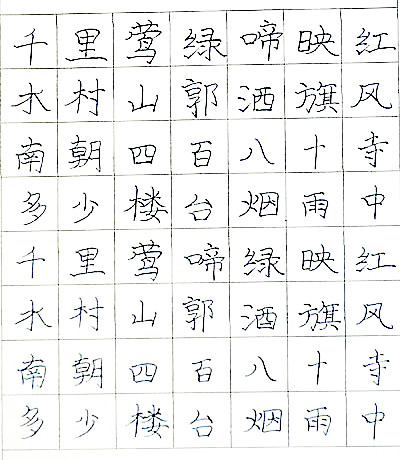 千里莺绿啼映红
水村山郭酒旗风
南朝四百八十寺
多少楼台烟雨中
千里莺啼绿映红
水村山郭酒旗风
南朝四百八十寺
多少楼台烟雨中